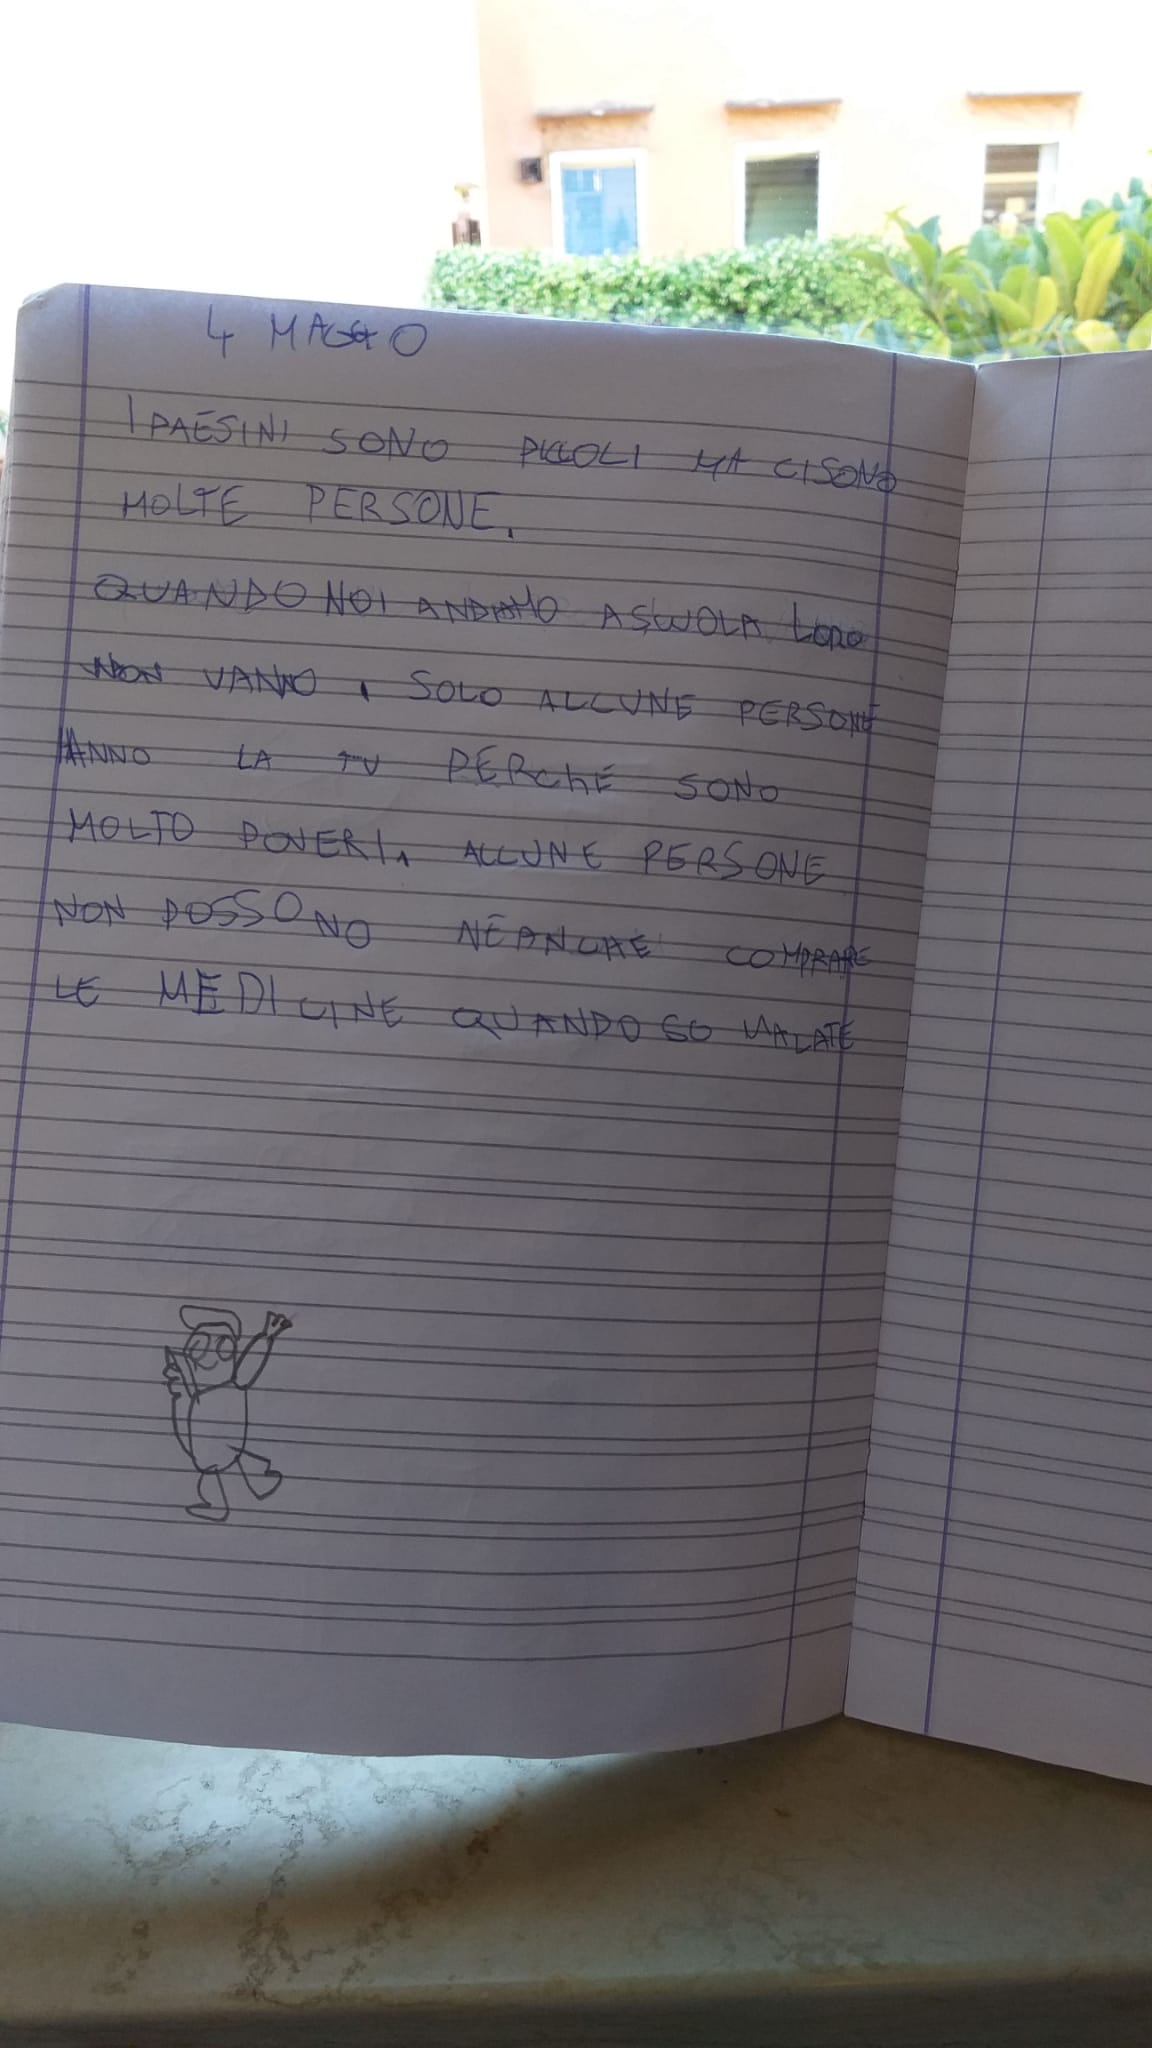 4 MAGGIO
I PAESINI SONO PICCOLI MA CISONO
MOLTE PERSONE.
QUANDO NOI ANDIAMO A SCUOLA LORO
NON VANNO, SOLO ALLCUNE PERSONE
HANNO LA TV PERChÉ SONO
MOLTO POVERI, ALLCUNE PERSONE
NON POSSONO NEANCHE COMPRARE
LE MEDICINE QUANDO SO MALATE